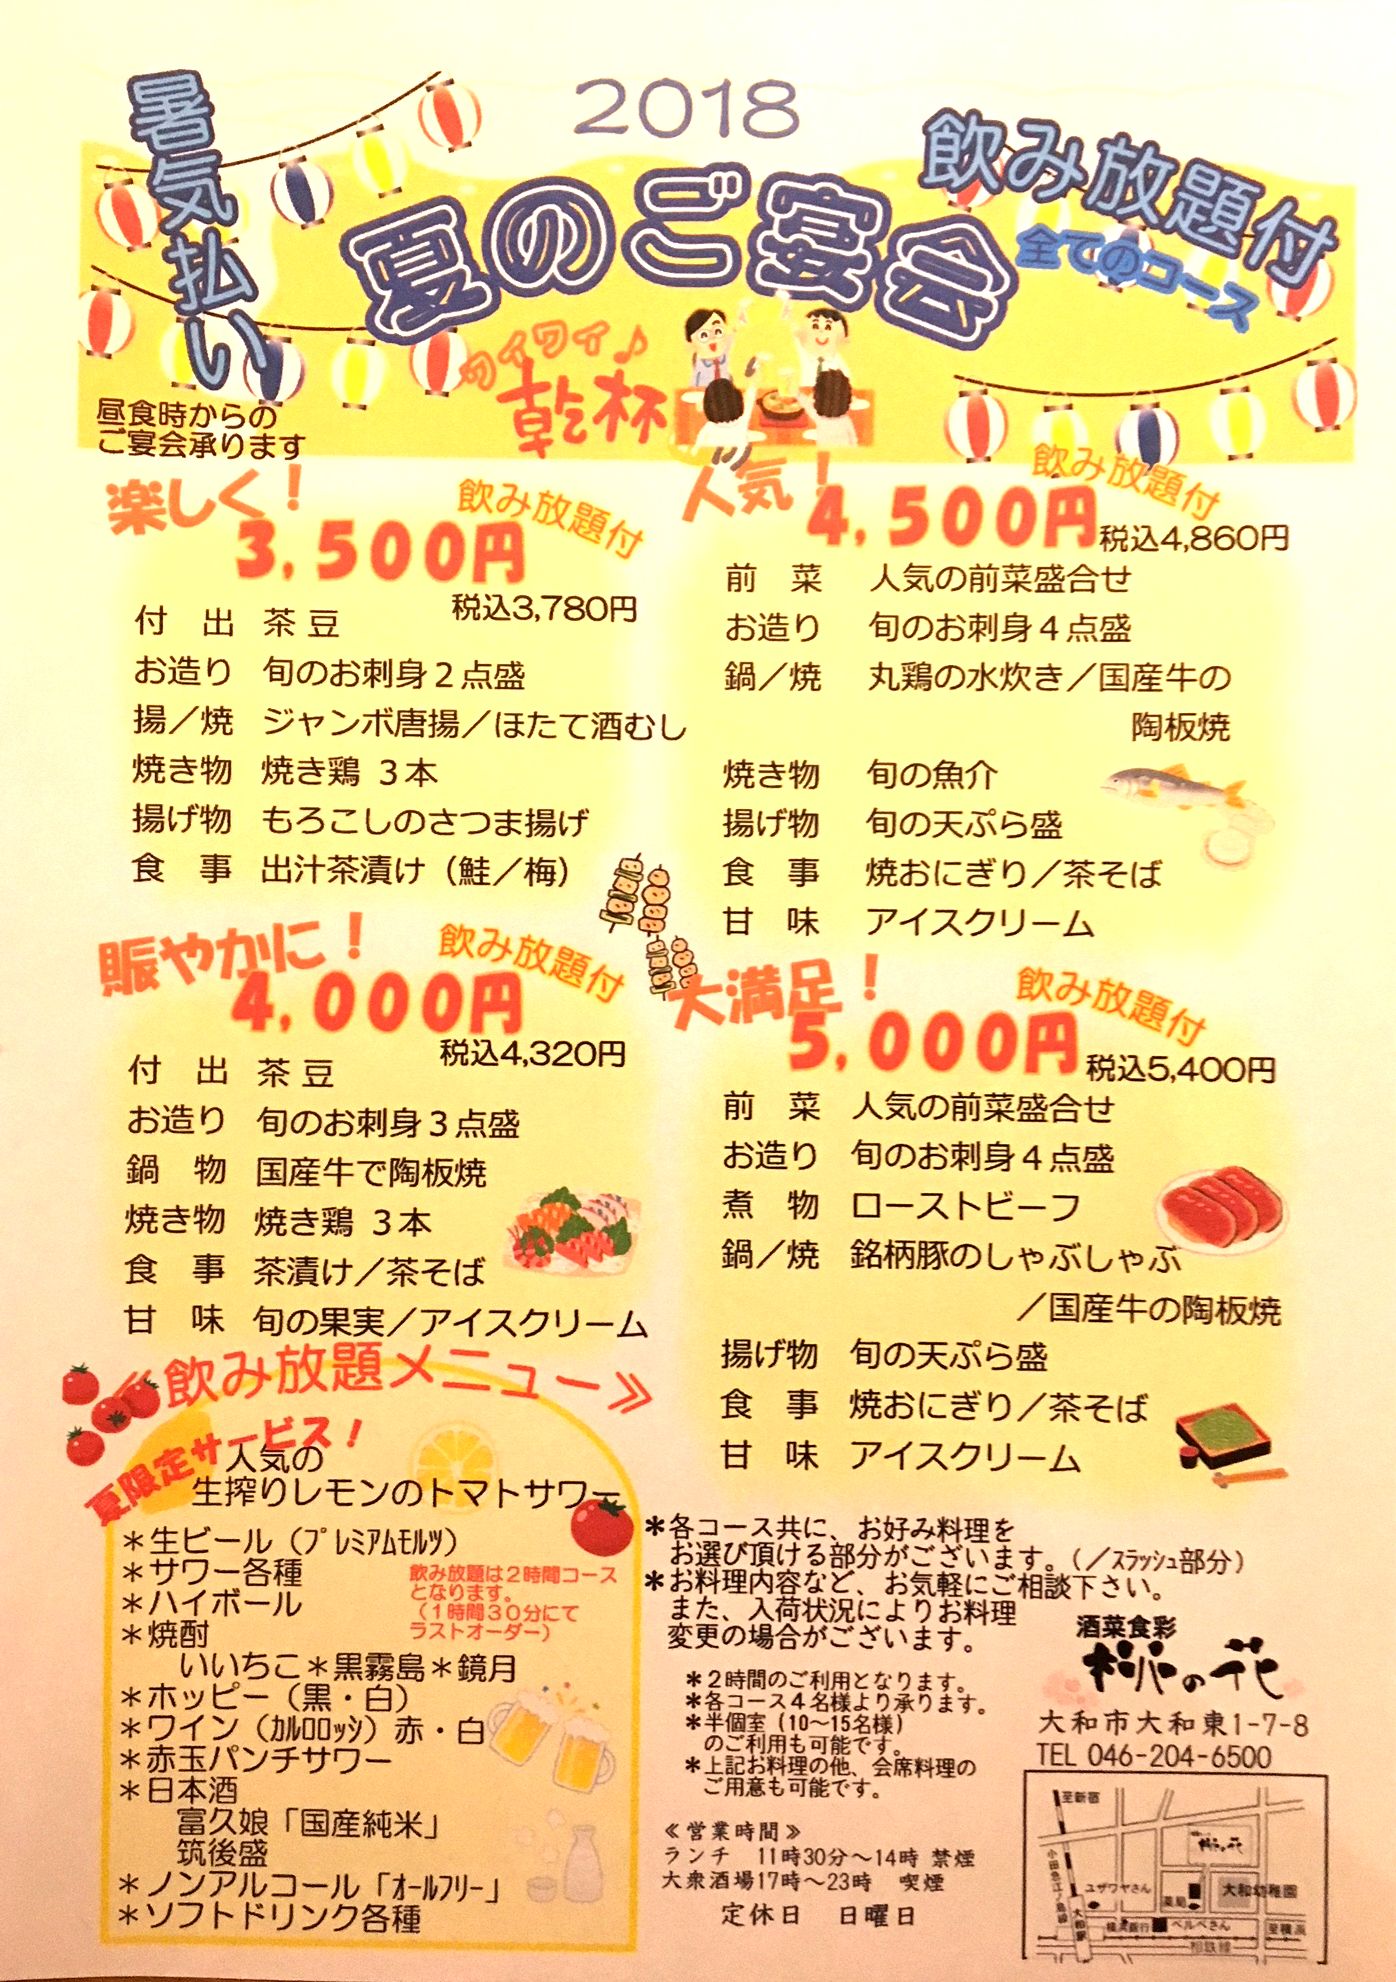 2018
暑気払い
夏のご宴会
飲み放題付
全てのコース
ワイワイ♪
乾杯
昼食時からの
ご宴会承ります
楽しく！
飲み放題付
3,500円
税込3,780円
付　出　茶豆
お造り　旬のお刺身２点盛
揚／焼　ジャンボ唐揚／ほたて酒むし
焼き物　焼き鶏 ３本
揚げ物　もろこしのさつま揚げ
食　事　出汁茶漬け（鮭／梅）
賑やかに！
飲み放題付
4,000円
税込4,320円
付　出　茶豆
お造り　旬のお刺身３点盛
鍋　物　国産牛で陶板焼
焼き物　焼き鶏 ３本
食　事　茶漬け／茶そば
甘　味　旬の果実／アイスクリーム
人気！
飲み放題付
4,500円
税込4,860円
前　菜　人気の前菜盛合せ
お造り　旬のお刺身４点盛
鍋／焼　丸鶏の水炊き／国産牛の
陶板焼
焼き物　旬の魚介
揚げ物　旬の天ぷら盛
食　事　焼おにぎり／茶そば
甘　味　アイスクリーム
大満足！
飲み放題付
5,000円
税込5,400円
前　菜　人気の前菜盛合せ
お造り　旬のお刺身４点盛
煮　物　ローストビーフ
鍋／焼　銘柄豚のしゃぶしゃぶ
／国産牛の陶板焼
揚げ物　旬の天ぷら盛
食　事　焼おにぎり／茶そば
甘　味　アイスクリーム
≪飲み放題メニュー≫
夏限定サービス！
人気の
生搾りレモンのトマトサワー
＊生ビール（ﾌﾟﾚﾐｱﾑﾓﾙﾂ）
＊サワー各種
＊ハイボール
＊焼酎
いいちこ＊黒霧島＊鏡月
＊ホッピー（黒・白）
＊ワイン（ｶﾙﾛﾛｯｼ）赤・白
＊赤玉パンチサワー
＊日本酒
富久娘「国産純米」
筑後盛
＊ノンアルコール「ｵｰﾙﾌﾘｰ」
＊ソフトドリンク各種
飲み放題は２時間コース
となります。
（１時間３０分にて
ラストオーダー）
＊各コース共に、お好み料理を
お選び頂ける部分がございます。（／ｽﾗｯｼｭ部分）
＊お料理内容など、お気軽にご相談下さい。
また、入荷状況によりお料理
変更の場合がございます。
＊２時間のご利用となります。
＊各コース４名様より承ります。
＊半個室（10～15名様）
のご利用も可能です。
＊上記お料理の他、会席料理の
ご用意も可能です。
≪営業時間≫
ランチ　11時30分～14時 禁煙
大衆酒場17時～23時　喫煙
定休日　日曜日
酒菜食彩
桃の花
大和市大和東1-7-8
TEL 046-204-6500
至新宿
小田急江ノ島線
桃の花
ユザワヤさん
薬局
大和幼稚園
大和駅
横浜銀行
ベルベさん
至横浜
相鉄線